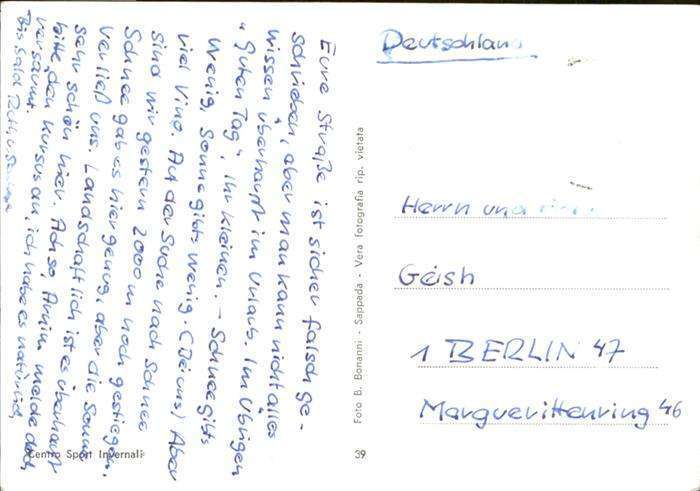 Eure Straße ist sicher falsch ge-
schrieben, aber man kann nicht alles
wissen überhaupt im Urlaub. Im Übrigen
"Guten Tag", Ihr kleinen. – Schnee gibts
wenig, Sonne gibts wenig. (Bei uns) Aber
viel Vino. Auf der Suche nach Schnee
sind wir gestern 2000 m hoch gestiegen.
Schnee gab es hier genug, aber die Sonne
verließ uns. Landschaftlich ist es überhaupt
sehr schön hier. Ach so, Armin melde doch
bitte den Kursus an, ich habe es natürlich
versäumt.
Bis bald
Deutschland
Herrn und
Geish
1 BERLIN 47
Margueritenring 46
Foto B. Bonanni - Sappada - Vera fotografia rip. vietata
Centro Sport Invernali
39